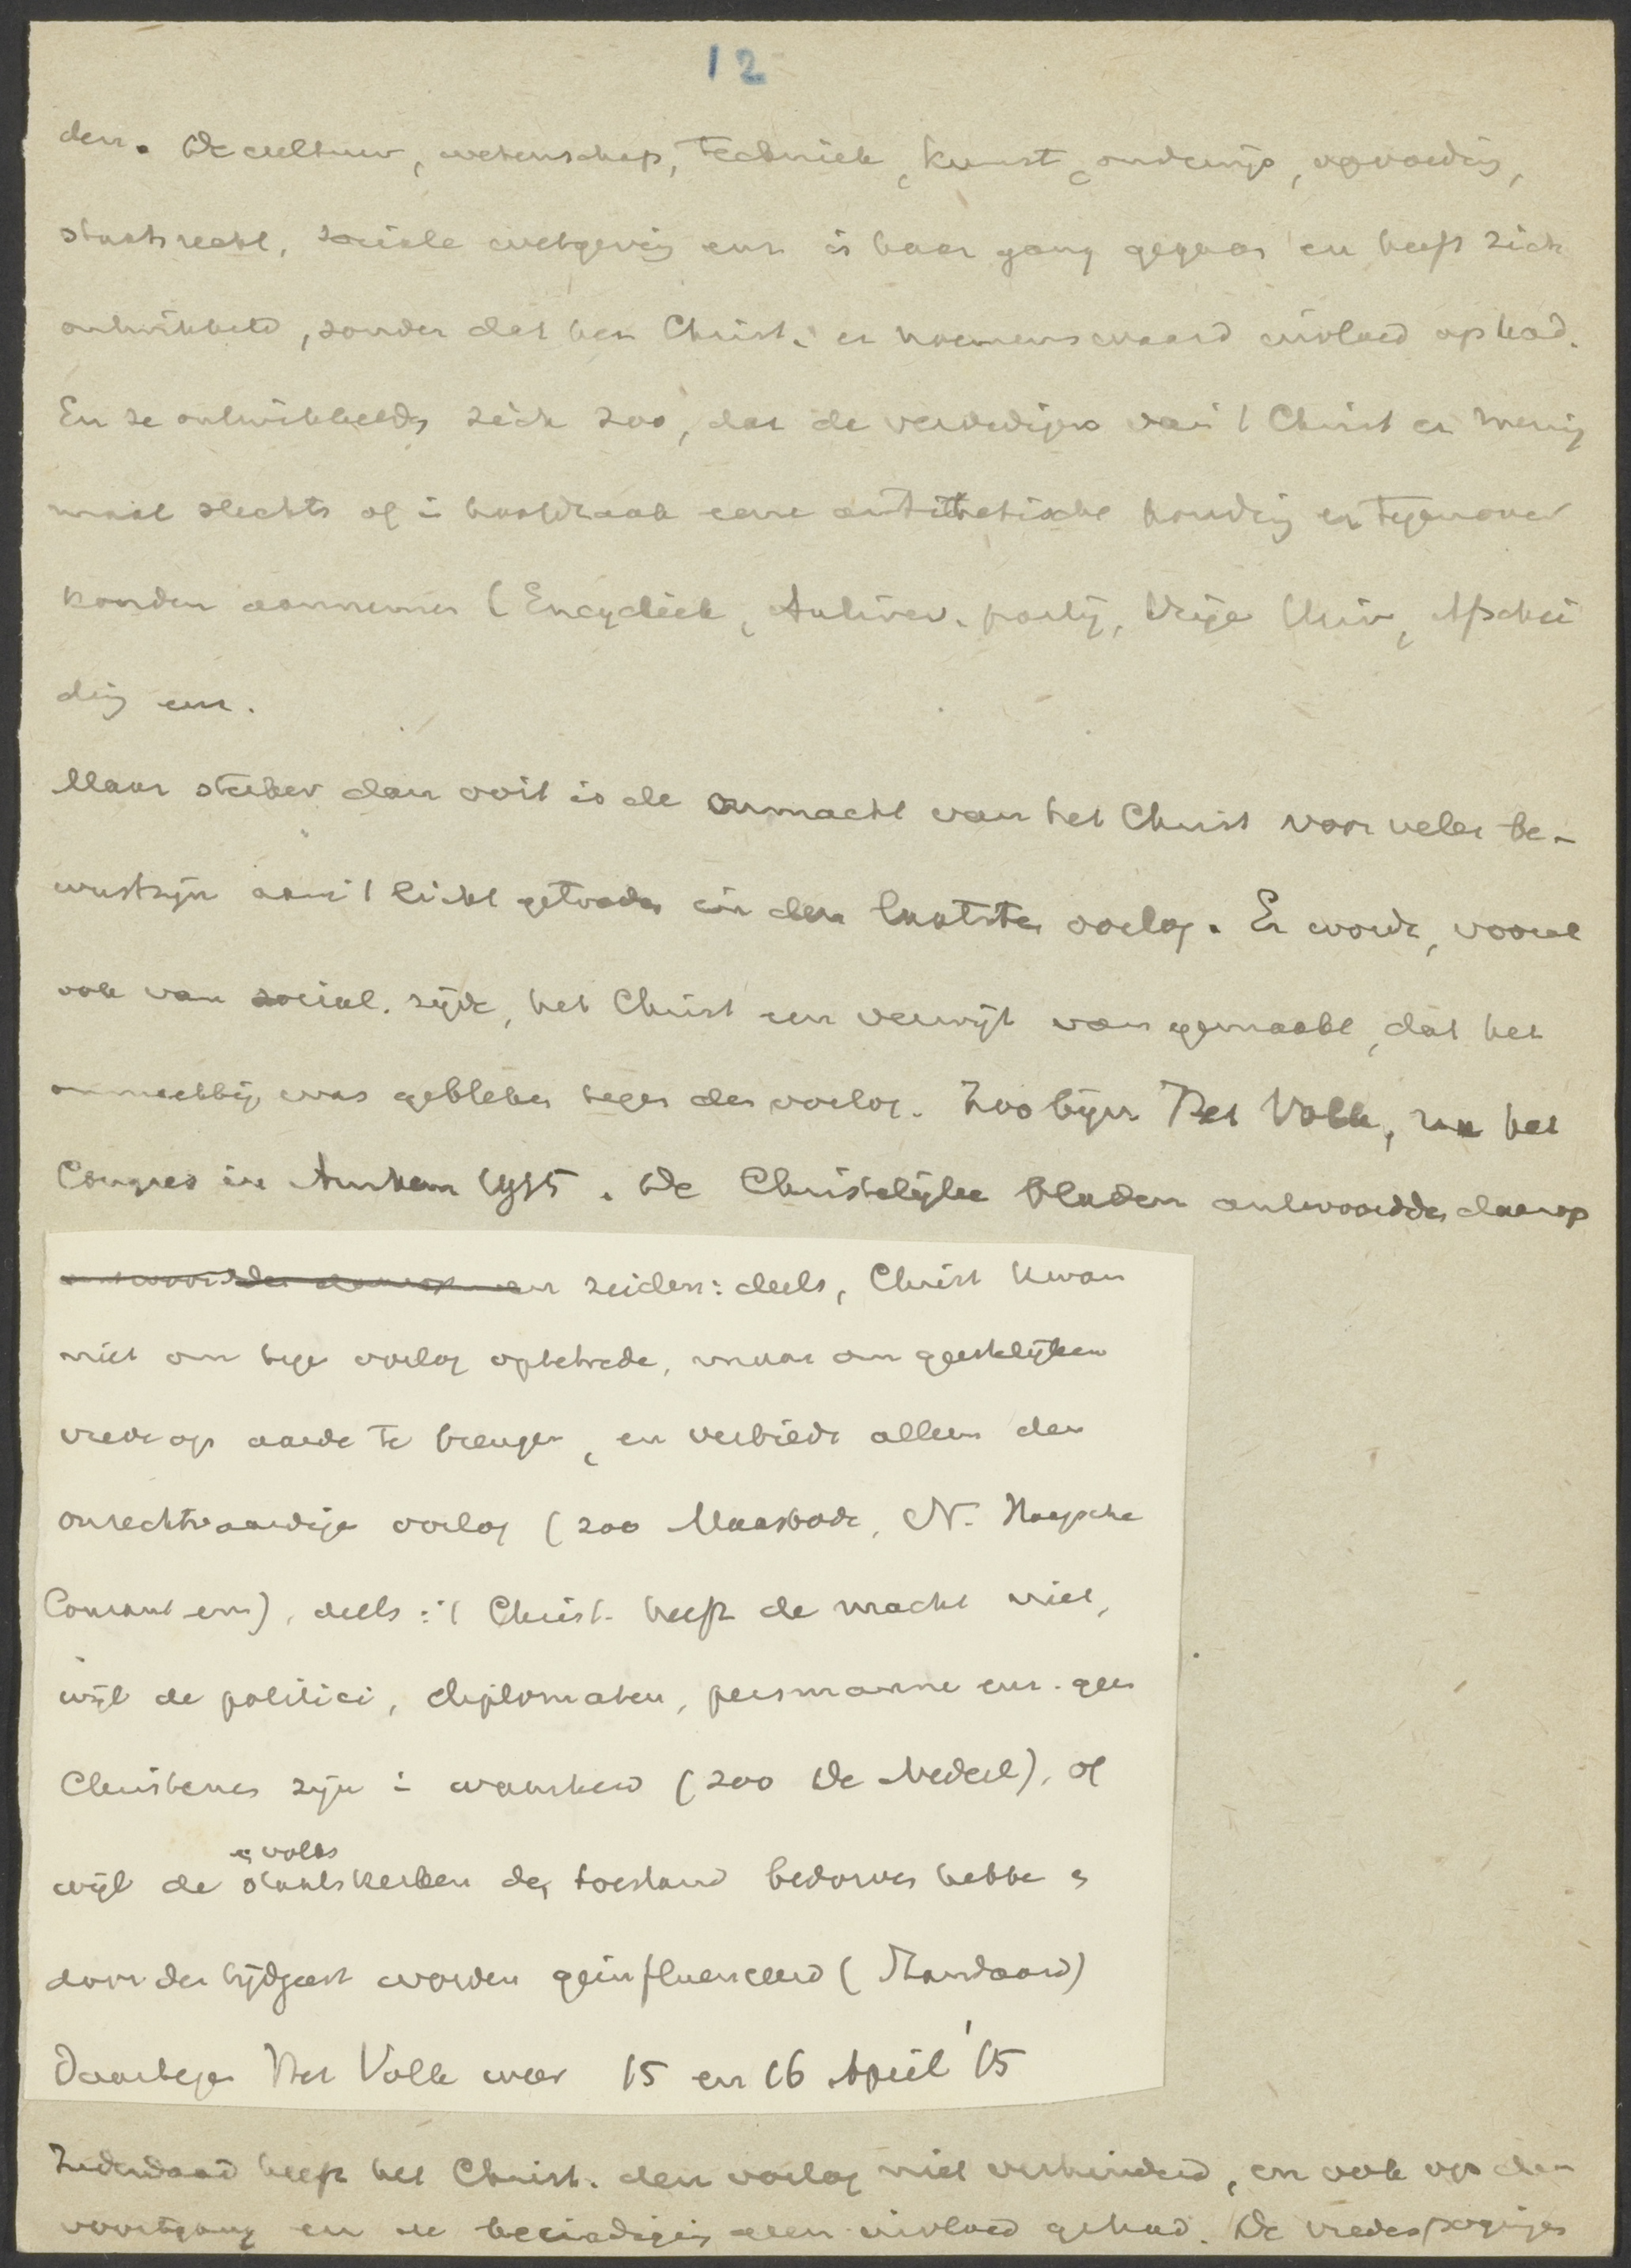 12
den. De cultuur, wetenschap, techniek, kunst, onderwijs, opvoeding,
staatsrecht, sociale wetgeving enz. is haar gang gegaan en heeft zich
ontwikkeld, zonder dat het Christ. er noemenswaard invloed op had.
En ze ontwikkelde zich zoo, dat de verdedigers van 't Christ er menig
maal slechts of in hoofdzaak eene antithetische houding er tegenover
konden aannemen (Encycliek, Antirev. partij, Vrije Univ, Afschei
ding enz.
Maar sterker dan ooit is de onmacht van het Christ voor veler be-
wustzijn aan 't licht getreden in den laatsten oorlog. Er wordt, vooral
ook van social. zijde, het Christ een verwijt van gemaakt, dat het
onmachtig was gebleken tegen den oorlog. Zoo bijv. Het Volk, na het
Congres in Arnhem 1915. De Christelijke bladen antwoordden daarop
antwoordden daarop en zeiden: deels, Christ kwam
niet om tegen oorlog op te treden, maar om geestelijken
vrede op aarde te brengen, en verbiedt alleen den
onrechtvaardigen oorlog (zoo Maasbode, N. Haagsche
Courant enz), deels: 't Christ. heeft de macht niet,
wijl de politici, diplomaten, persmannen enz. geen
Christenen zijn in waarheid (zoo De Nederl), of
en volks
wijl de staatskerken den toestand bedorven hebben en
door den tijdgeest worden geïnfluenceerd (Standaard)
Daartegen Het Volk weer 15 en 16 April '15
Inderdaad heeft het Christ. den oorlog niet verhinderd, en ook op den
voortgang en de beëindiging geen invloed gehad. De vredespogingen